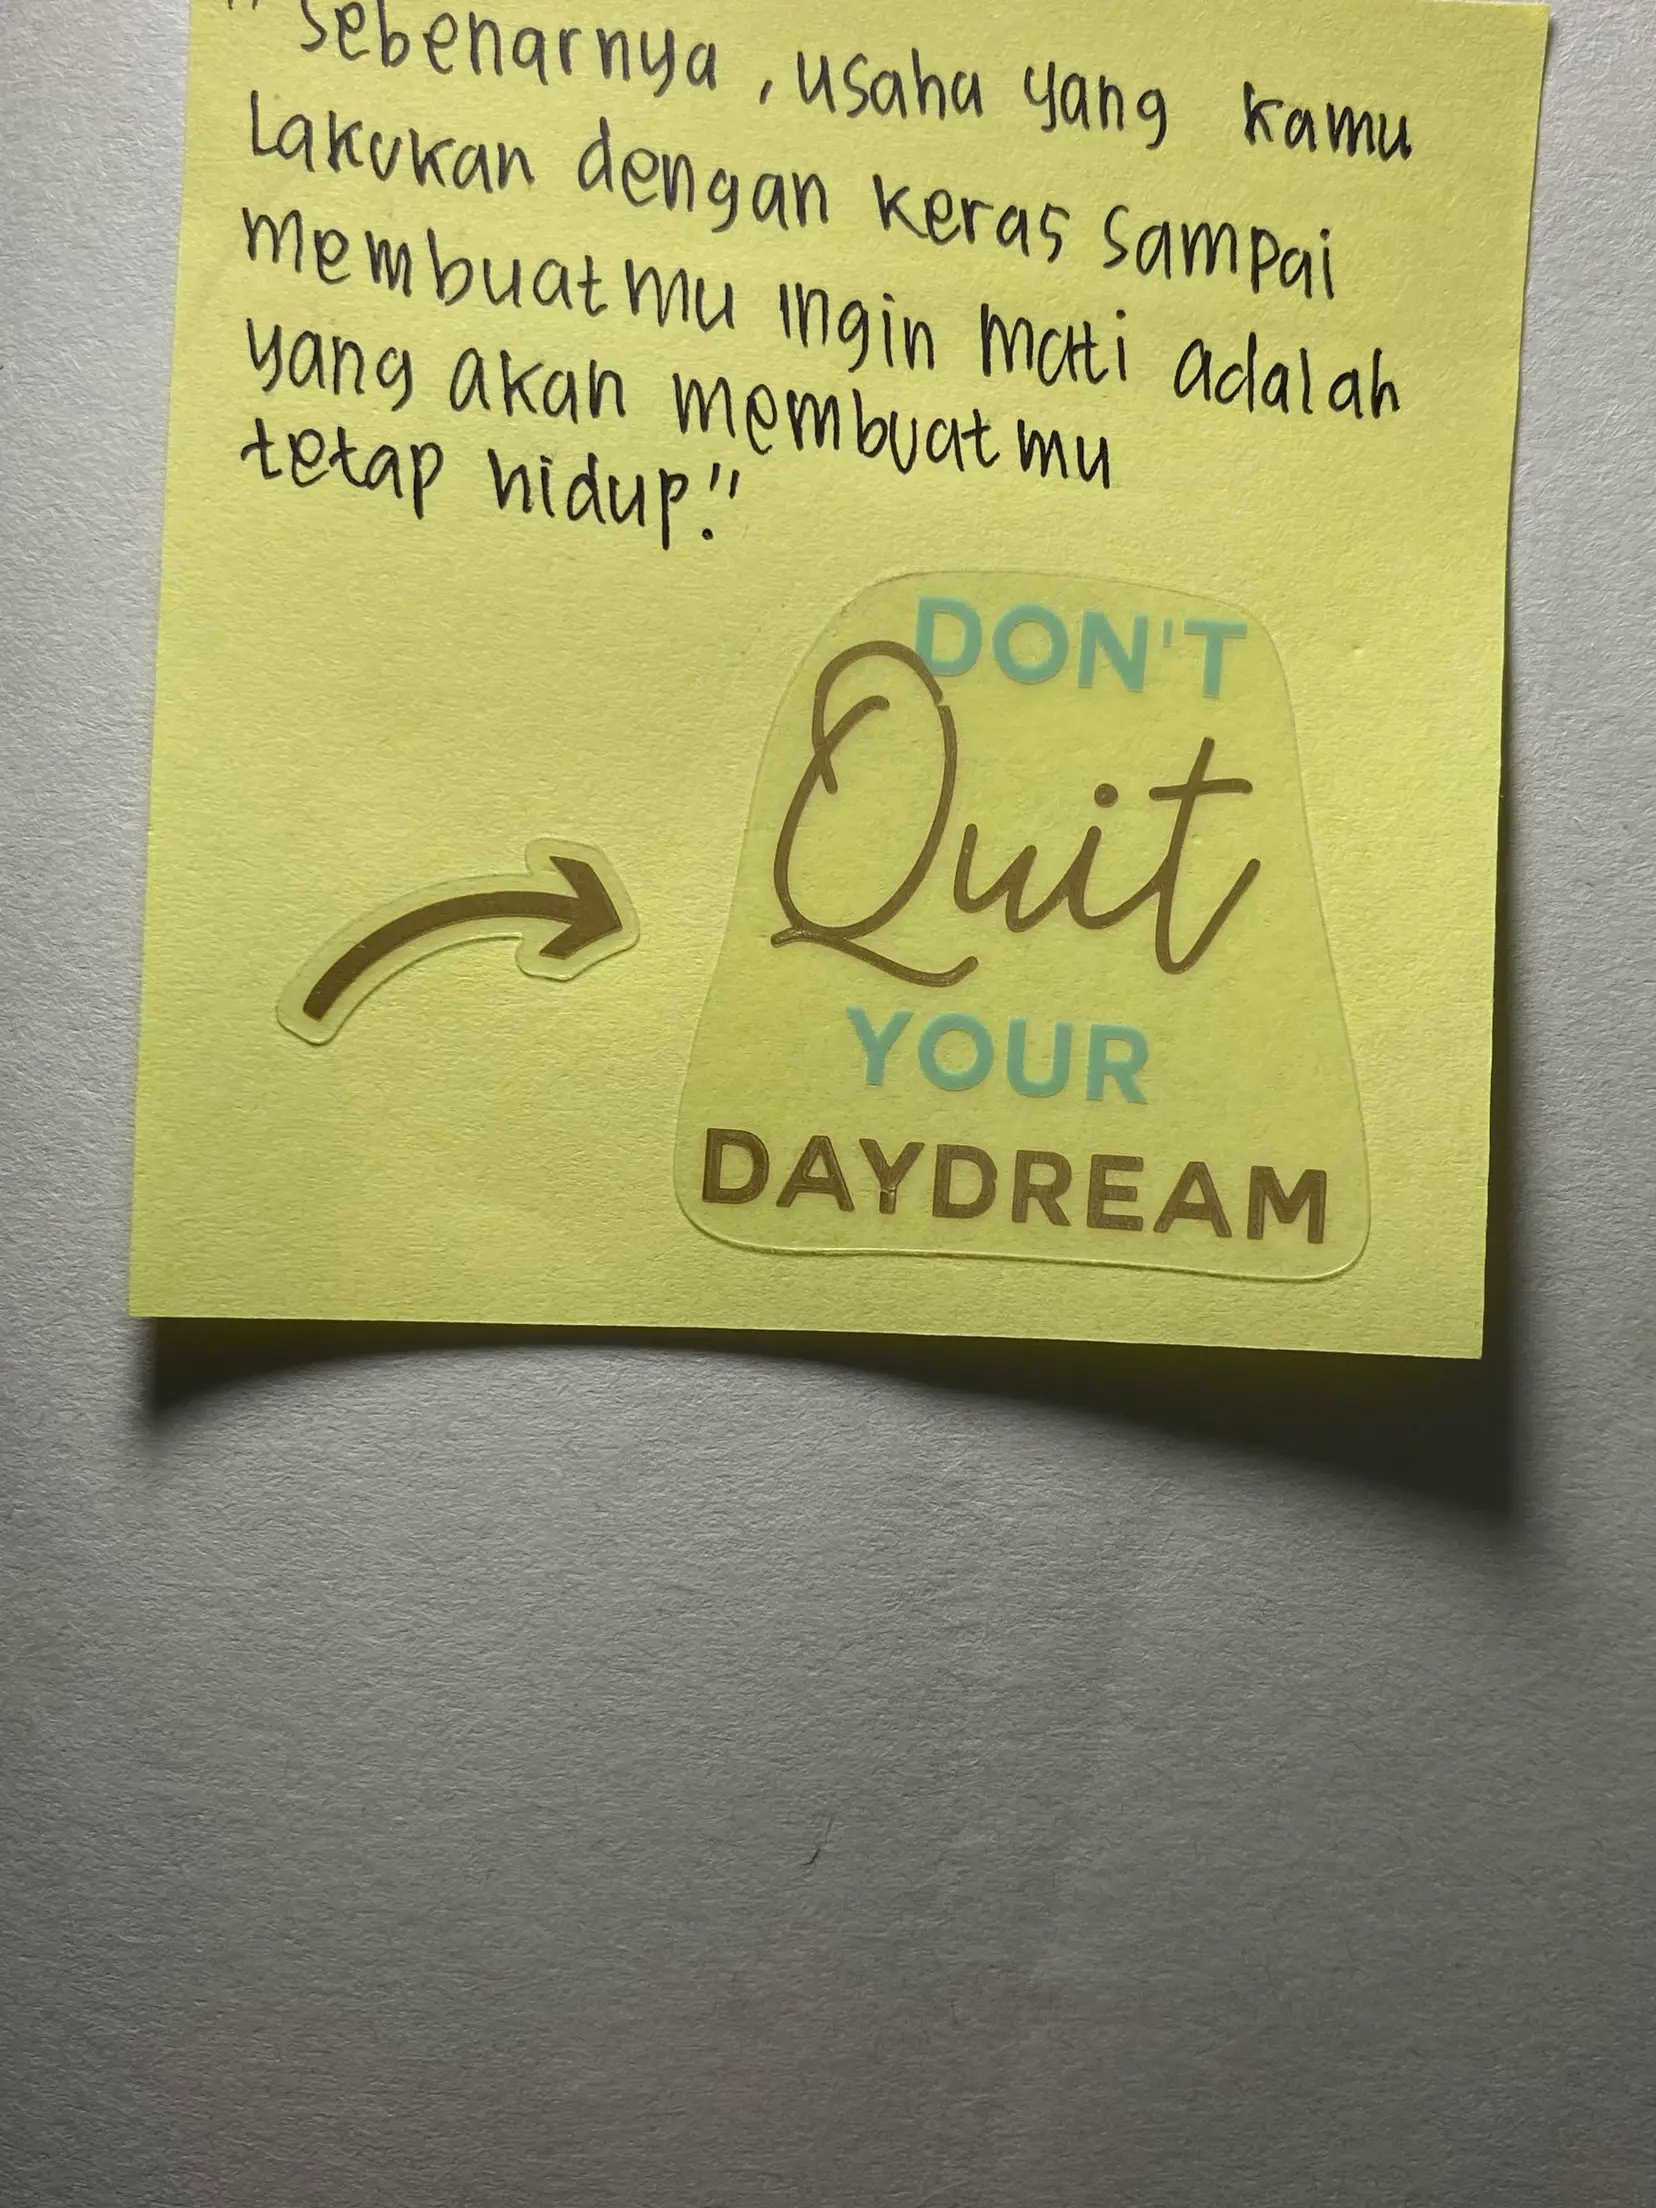 "Sebenarnya, usaha yang kamu
Lakukan dengan keras sampai
membuatmu ingin mati adalah
yang akan membuatmu
tetap hidup."
DON'T
Quit
YOUR
DAYDREAM